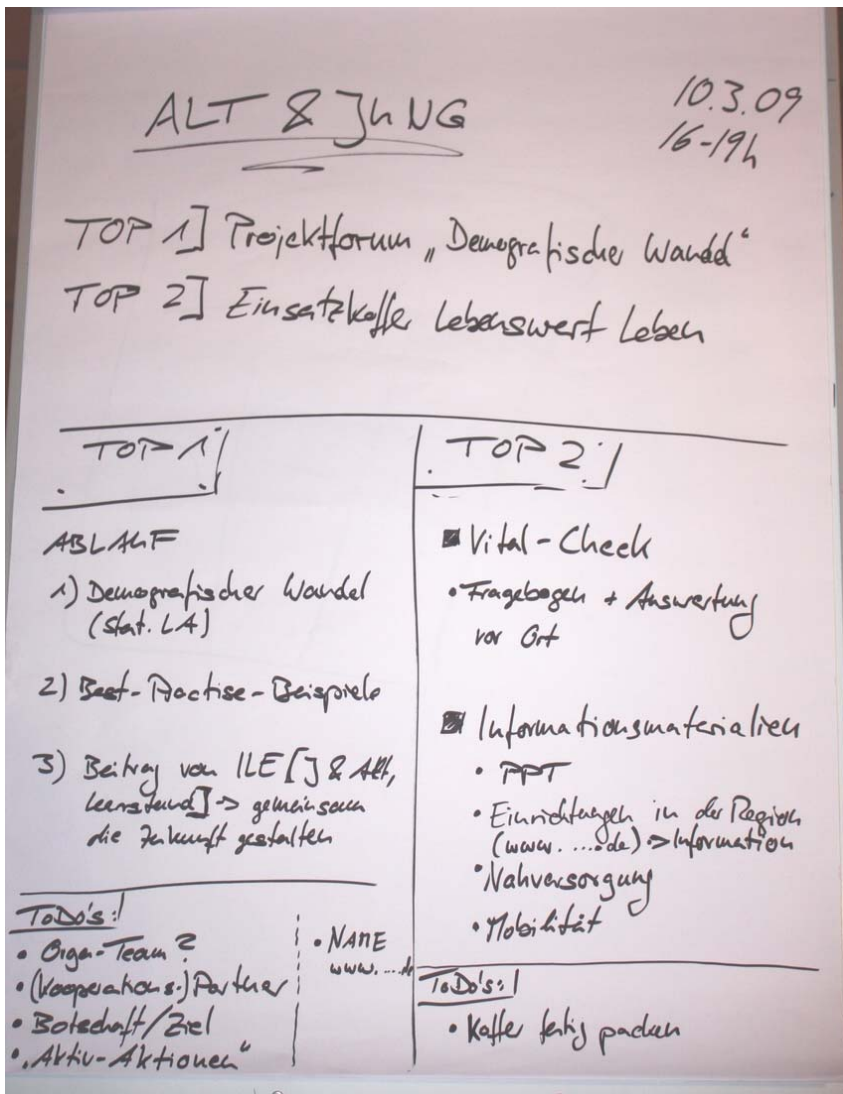 ALT & JUNG
10.3.09
16-19h
TOP 1] Projektforum „Demografischer Wandel“
TOP 2] Einsatzkoffer Lebenswert Leben
TOP 1
ABLAUF
1) Demografischer Wandel
(Stat. LA)
2) Best-Practise-Beispiele
3) Beitrag von ILE [J & Alt,
Leerstand] -> gemeinsam
die Zukunft gestalten
ToDo's:
• Orga-Team?
• (Kooperations-)Partner
• Botschaft/Ziel
• „Aktiv-Aktionen“
• NAME
www. ....de
TOP 2
■ Vital-Check
• Fragebogen + Auswertung
vor Ort
■ Informationsmaterialien
• PPT
• Einrichtungen in der Region
(www. ....de) -> Information
• Nahversorgung
• Mobilität
ToDo's:
• Koffer fertig packen